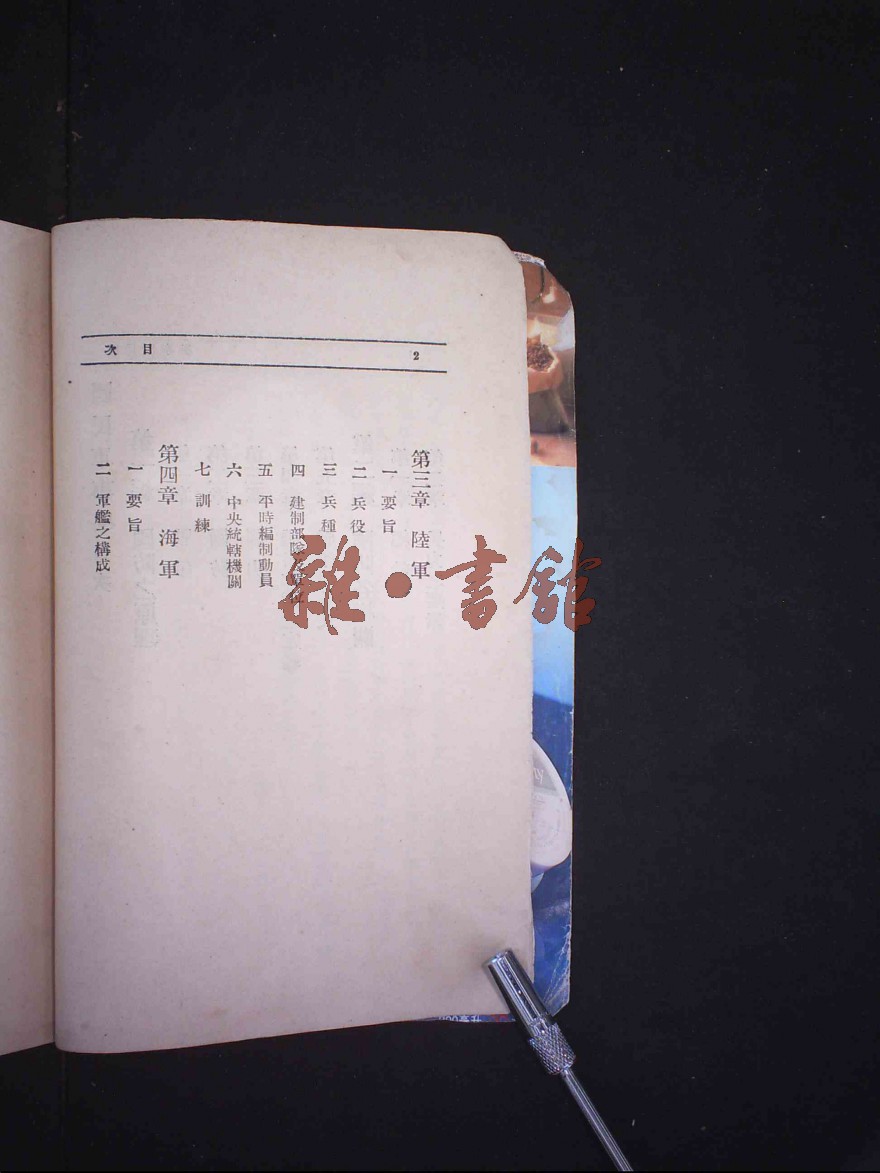 目次
2
第三章 陸軍
一 要旨
二 兵役
三 兵種
四 建制部隊
五 平時編制動員
六 中央統轄機關
七 訓練
第四章 海軍
一 要旨
二 軍艦之構成
雜·書館